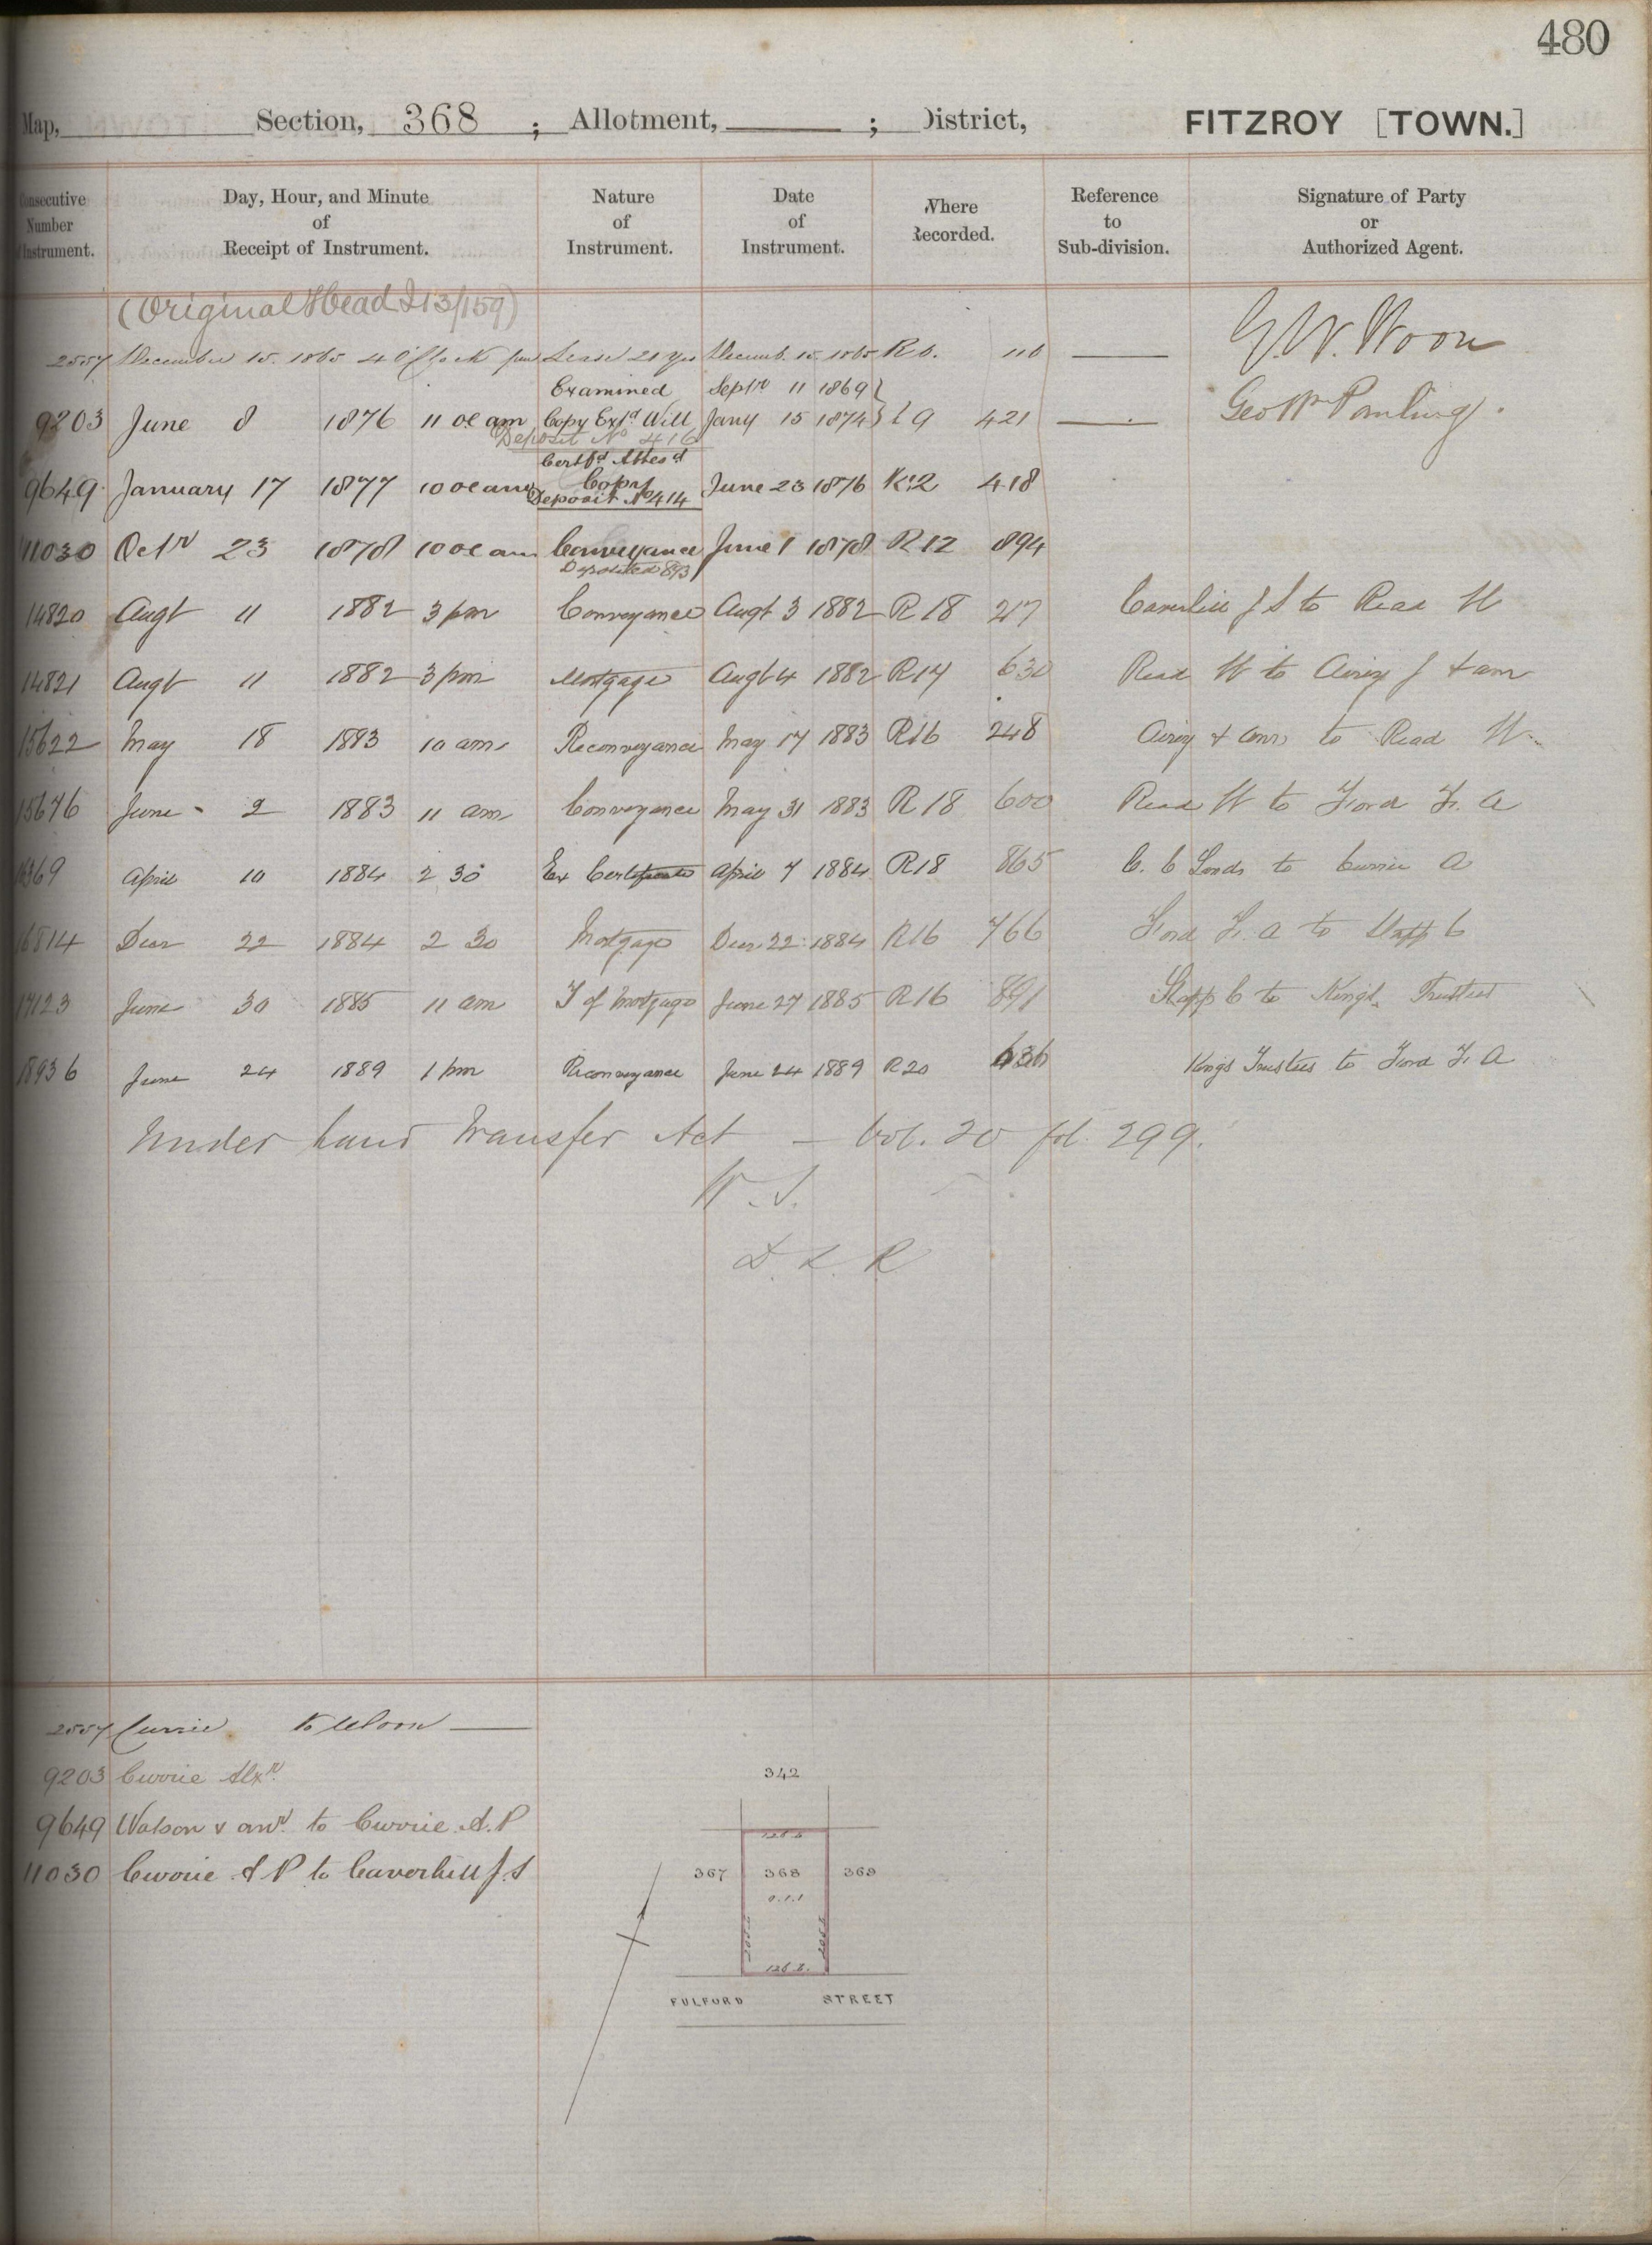 480
Map, Section, 368 ; Allotment, ; District, FITZROY [TOWN.]
Consecutive Number of Instrument. Day, Hour, and Minute of Receipt of Instrument. Nature of Instrument. Date of Instrument. Where Recorded. Reference to Sub-division. Signature of Party or Authorized Agent.
(Original Head I 13/159)
2557 December 15. 1865 4 O'Clock pm Lease 21 yrs Decemb. 15. 1865 R 6. 116 G. W. Woon
Examined Septr 11 1869
9203 June 8 1876 11 0c am Copy Extd Will Jany 15 1874 L 9 421 Geo Wm Pauling.
Deposit No 416
Certfd Attesd
9649 January 17 1877 10 0c am Copy June 23 1876 K:2 418
Deposit No 414
11030 Octr 23 1878 10 0c am Conveyance June 1 1878 R12 894
Deposited 893
14820 Augt 11 1882 3 pm Conveyance Augt 3 1882 R 18 217 Caverhill J S to Read W
14821 Augt 11 1882 3 pm Mortgage Augt 4 1882 R14 630 Read W to Airey J & anr
15622 May 18 1883 10 am Reconveyance May 17 1883 R16 248 Airey & anr to Read W.
15676 June 2 1883 11 am Conveyance May 31 1883 R 18 600 Read W to Ford F. A
369 April 10 1884 2 30 Ex Certificate April 7 1884 R18 865 C. C Lands to Currie A
16814 Decr 22 1884 2 30 Mortgage Decr 22 1884 R16 766 Ford F. A to C
17123 June 30 1885 11 am T of Mortgage June 27 1885 R16 891 C to King's Trustees
18936 June 24 1889 1 pm Reconveyance June 24 1889 R20 636 Kings Trustees to Ford F. A
Under Land Transfer Act — Vol. 20 fol. 299.
D. L. R
2557 Currie to Woon
9203 Currie Alxr.
9649 Watson & anr. to Currie A. P
11030 Currie A P to Caverhill J. S
342
126.8
367 368 369
0.1.1
205.2 205.2
126.8.
FULFORD STREET